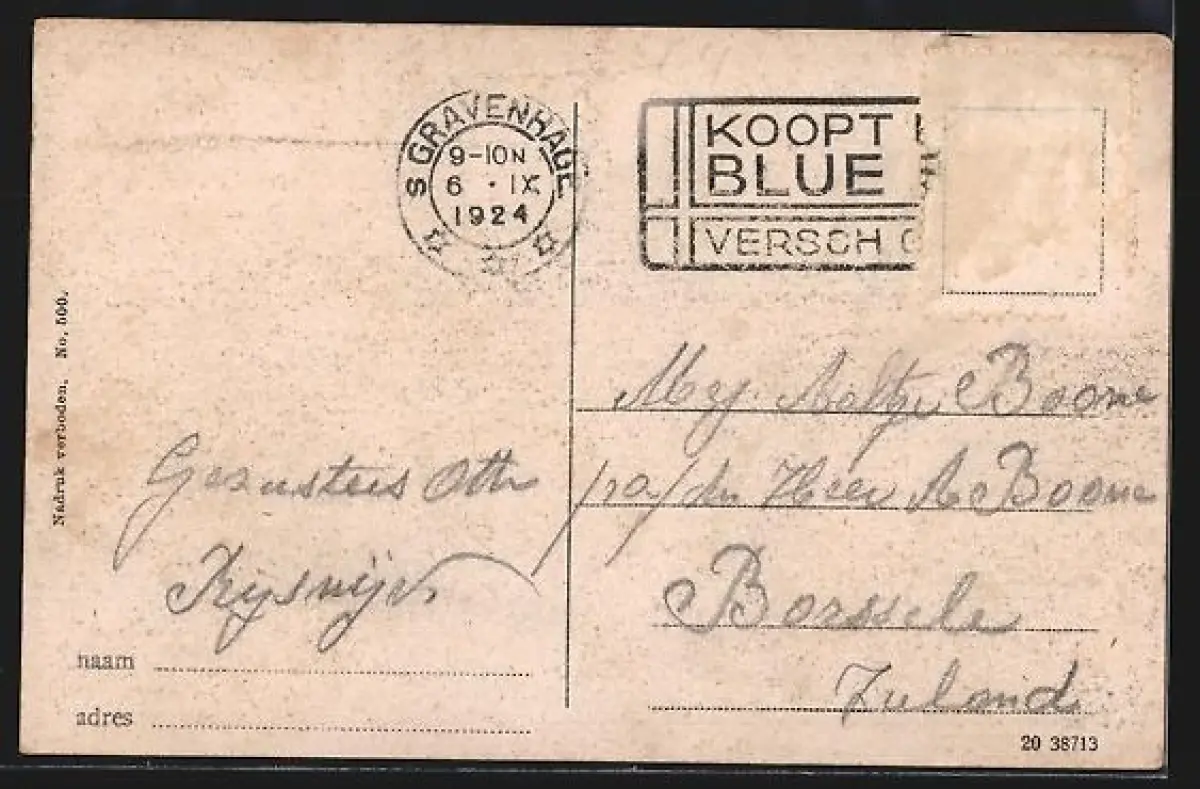 S GRAVENHAGE
9-10N
6 · IX
1924
KOOPT
BLUE
VERSCH
Nadruk verboden. No. 500.
Mej Aaltje Boone
p/a/ den Heer A Boone
Borssele
Zeeland
naam
adres
20 38713